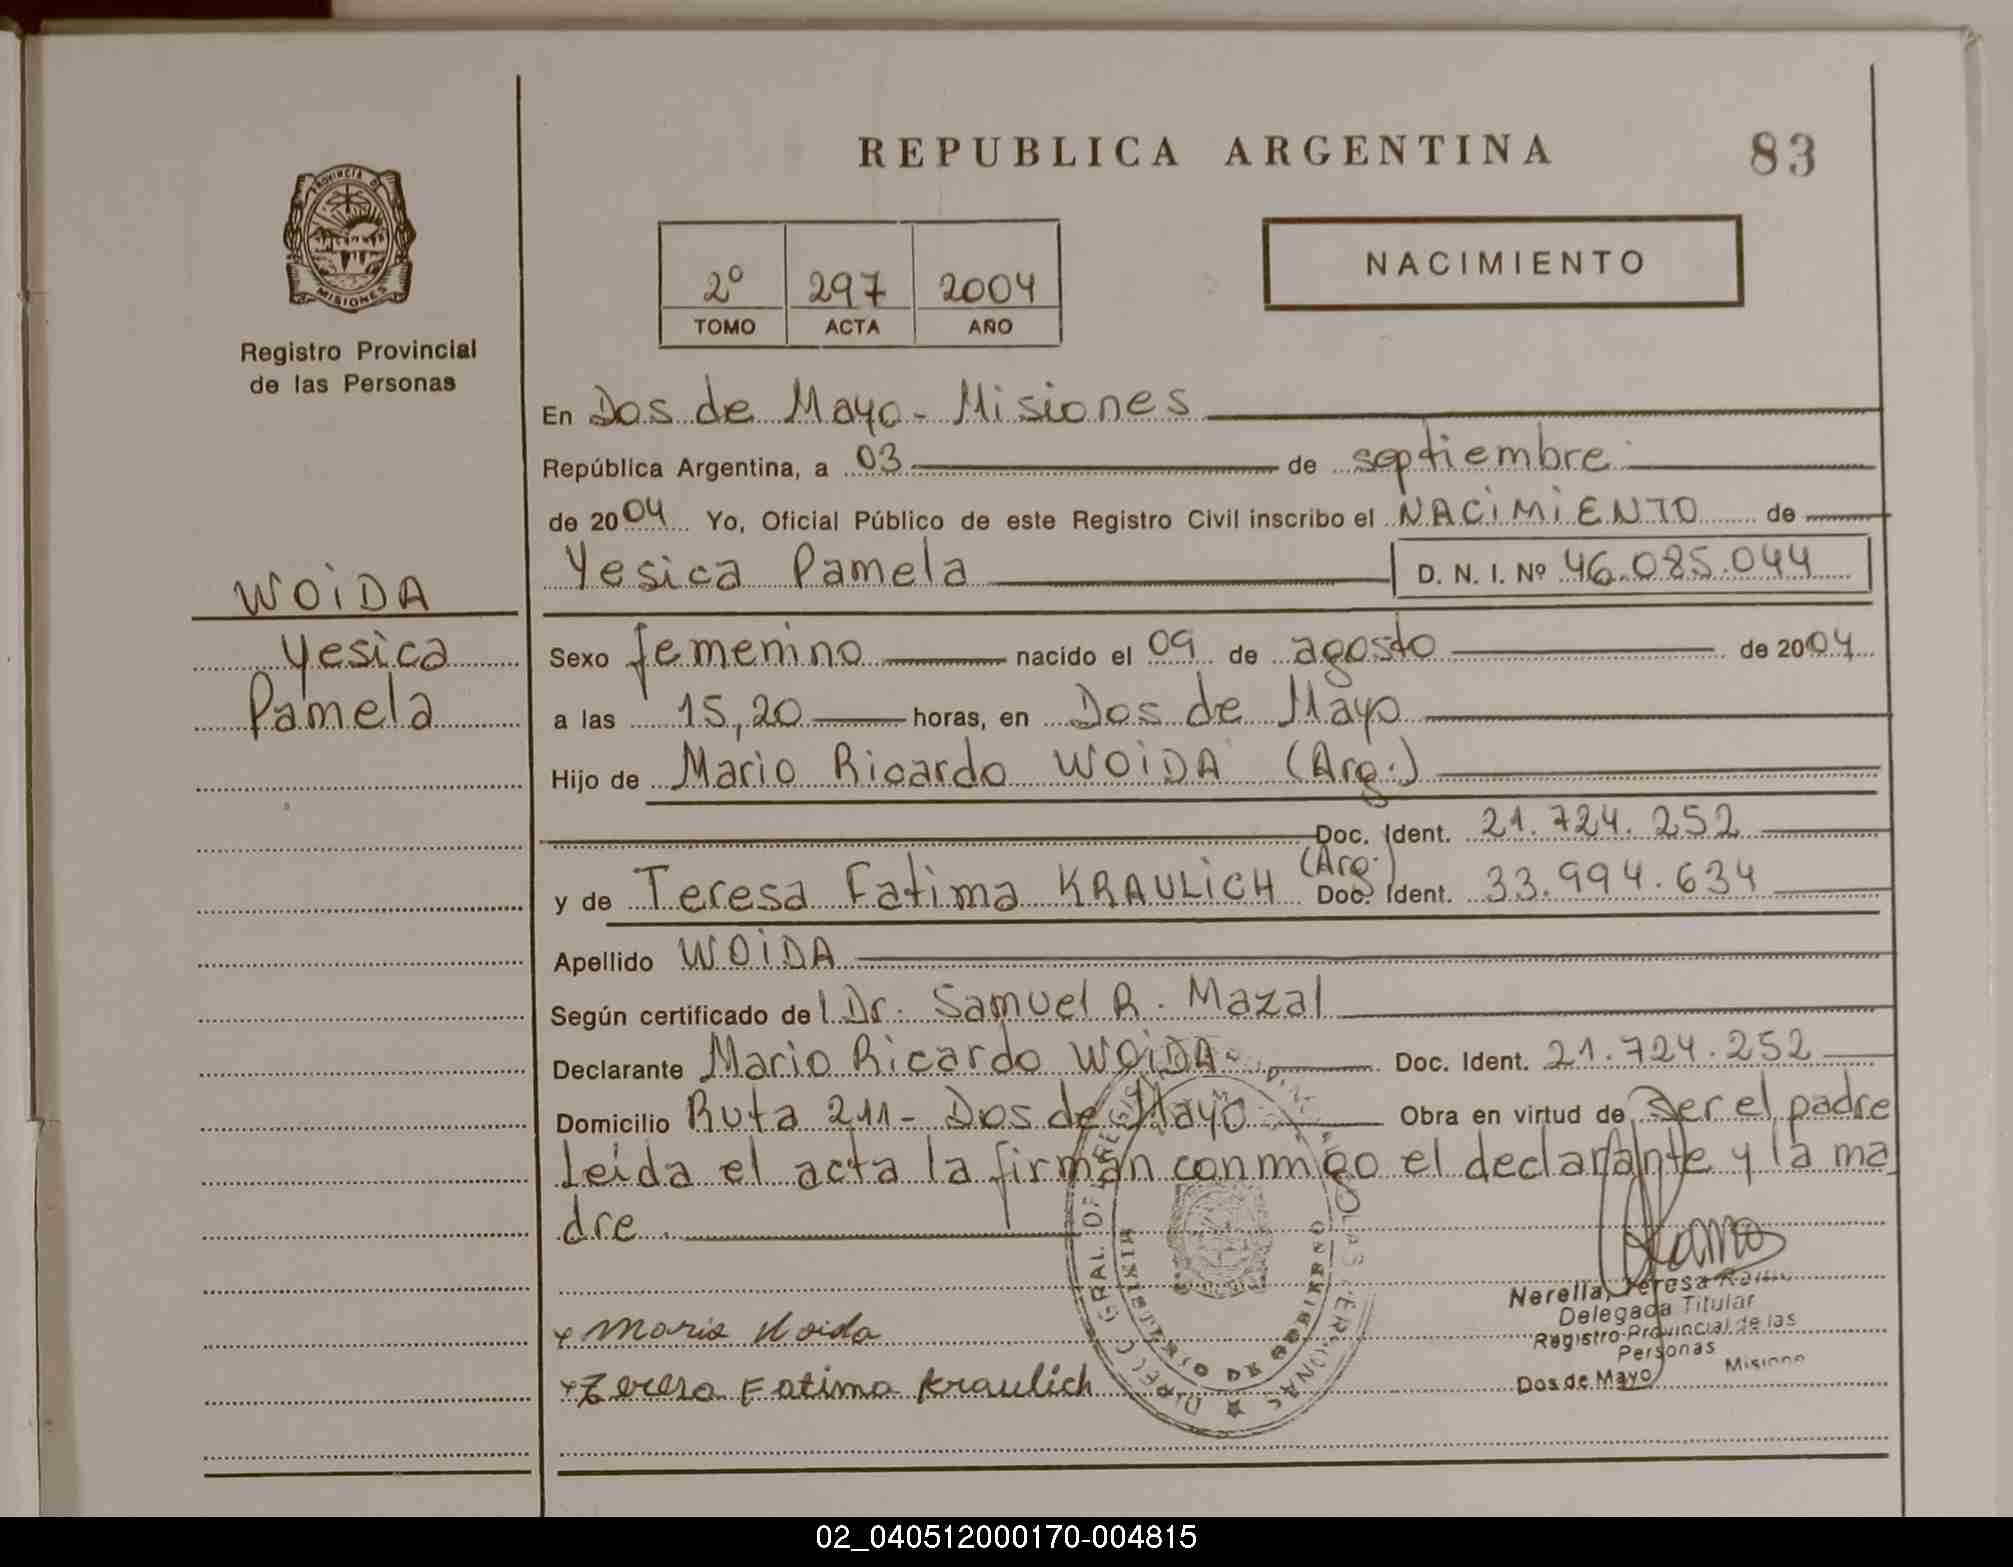 REPUBLICA ARGENTINA
83
PROVINCIA DE
MISIONES
Registro Provincial
de las Personas
2º 297 2004
TOMO ACTA AÑO
NACIMIENTO
WOiDA
Yesica
Pamela
En Dos de Mayo - Misiones
República Argentina, a 03 de septiembre
de 2004 Yo, Oficial Público de este Registro Civil inscribo el NACiMiENTO de
Yesica Pamela D. N. I. Nº 46.085.044
Sexo femenino nacido el 09 de agosto de 2004
a las 15,20 horas, en Dos de Mayo
Hijo de Mario Ricardo WOiDA (Arg.)
Doc. Ident. 21.724.252
y de Teresa Fatima KRAULiCH (Arg.) Doc. Ident. 33.994.634
Apellido WOiDA
Según certificado de l Dr. Samuel R. Mazal
Declarante Mario Ricardo WOiDA Doc. Ident. 21.724.252
Domicilio Ruta 211 - Dos de Mayo Obra en virtud de Ser el padre
Leida el acta la firman conmigo el declarante y la ma
dre.
x Mario Woida
x Teresa Fatima Kraulich
DIREC. GRAL. DE REGISTRO
PERSONAS
MINISTERIO DE GOBIERNO
Nerella, Teresa
Delegada Titular
Registro Provincial de las
Personas
Dos de Mayo Misiones
02_040512000170-004815